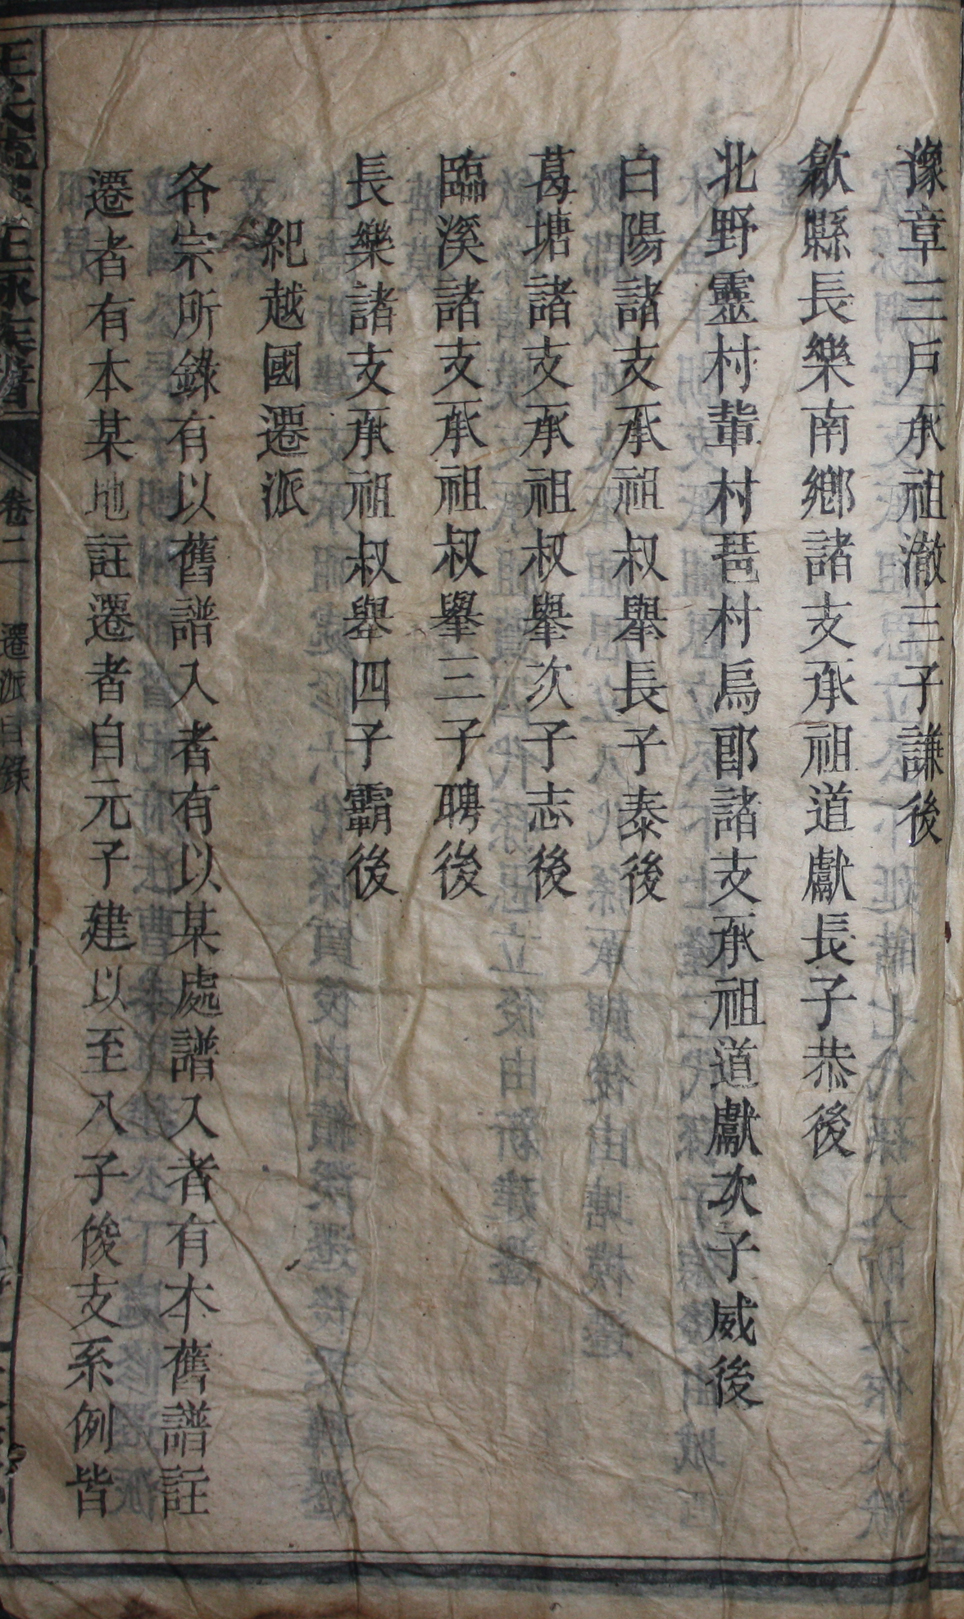 豫章三戶承祖澈三子謙後
歙縣長樂南鄉諸支承祖道獻長子恭後
北野靈村葦村琶村烏郎諸支承祖道獻次子威後
白陽諸支承祖叔舉長子泰後
葛塘諸支承祖叔舉次子志後
臨溪諸支承祖叔舉三子聘後
長樂諸支承祖叔舉四子霸後
紀越國遷派
各宗所錄有以舊譜入者有以某處譜入者有本舊譜註
遷者有本某地註遷者自元子建以至八子俊支系例皆
正脉族譜
卷二
遷派目錄